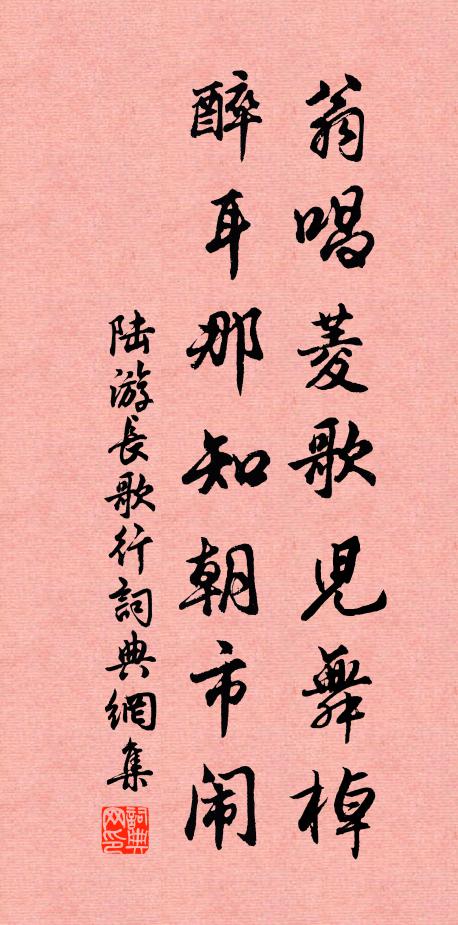 翁唱菱歌児舞棹
醉耳那知朝市闹
陆游長歌行詞典網集
詞典网印